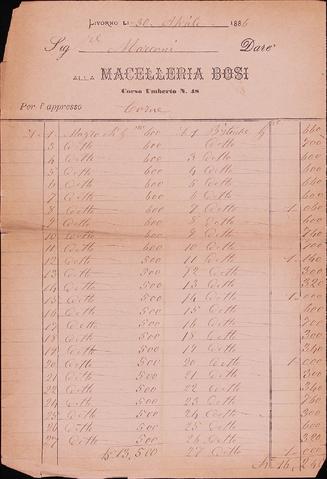 LIVORNO LI 30 Aprile 1886
Sig.re Marconi Dare
ALLA MACELLERIA BOSI
Corso Umberto N. 48
Per l'appresso Carne
1 Magro 600 1 Bistecche 660
3 Detto 600 Detto 700
4 Detto 600 3 Detto 600
5 Detto 600 4 Detto 600
6 Detto 600 5 Detto
7 Detto 600 6 Detto 600
8 Detto 600 7 Detto 1
9 Detto 600 8 Detto 600
10 Detto 600 9 Detto
11 Detto 600 10 Detto 700
12 Detto 500 11 Detto 1
13 Detto 500 12 Detto 300
14 Detto 500 13 Detto 320
15 Detto 500 14 Detto 1 000
16 Detto 500 15 Detto 600
17 Detto 500 16 Detto 700
18 Detto 500 18 Detto 300
19 Detto 500 19 Detto 340
20 Detto 500 20 Detto 1 000
21 Detto 500 21 Detto 300
22 Detto 500 22 Detto 340
24 Detto 500 23 Detto 760
25 Detto 500 24 Detto 300
26 Detto 500 25 Detto 600
27 Detto 500 26 Detto 320
13,500 27 Detto 1 000
16,240